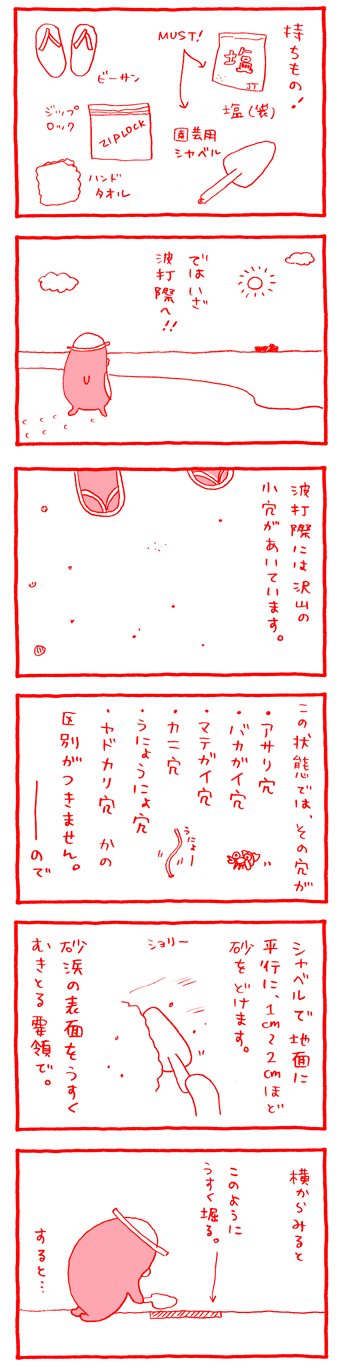 持ちもの!
MUST!
塩
JT
塩(袋)
ビーサン
ジップ
ロック
ZIPLOCK
園芸用
シャベル
ハンド
タオル
ではいざ
波打際へ!!
波打際には沢山の
小穴があいています。
この状態では、その穴が
・アサリ穴
・バカガイ穴
・マテガイ穴
・カニ穴
・うにょうにょ穴
・ヤドカリ穴 かの
区別がつきません。
――ので
うにょー
シャベルで地面に
平行に、1cm〜2cmほど
砂をどけます。
ショリー
砂浜の表面をうすく
むきとる要領で。
横からみると
このように
うすく掘る。
すると…